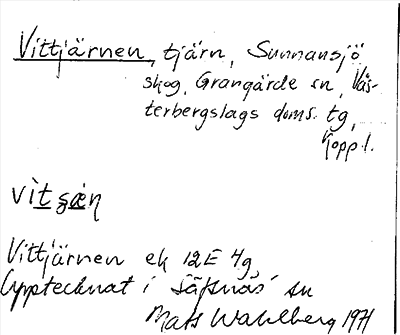 Vittjärnen, tjärn, Sunnansjö
skog, Grangärde sn, Väs-
terbergslags doms. tg,
Kopp. l.
vìt ʂæ̣ṇ
Vittjärnen ek 12E 4g
Upptecknat i Säfsnäs sn
Mats Wahlberg 1971